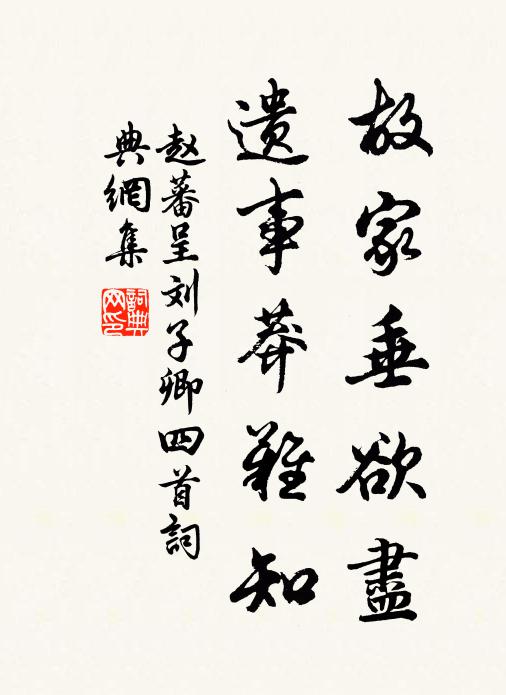 故家垂欲盡
遺事莽難知
赵蕃呈刘子卿四首詞
典網集
詞典網印